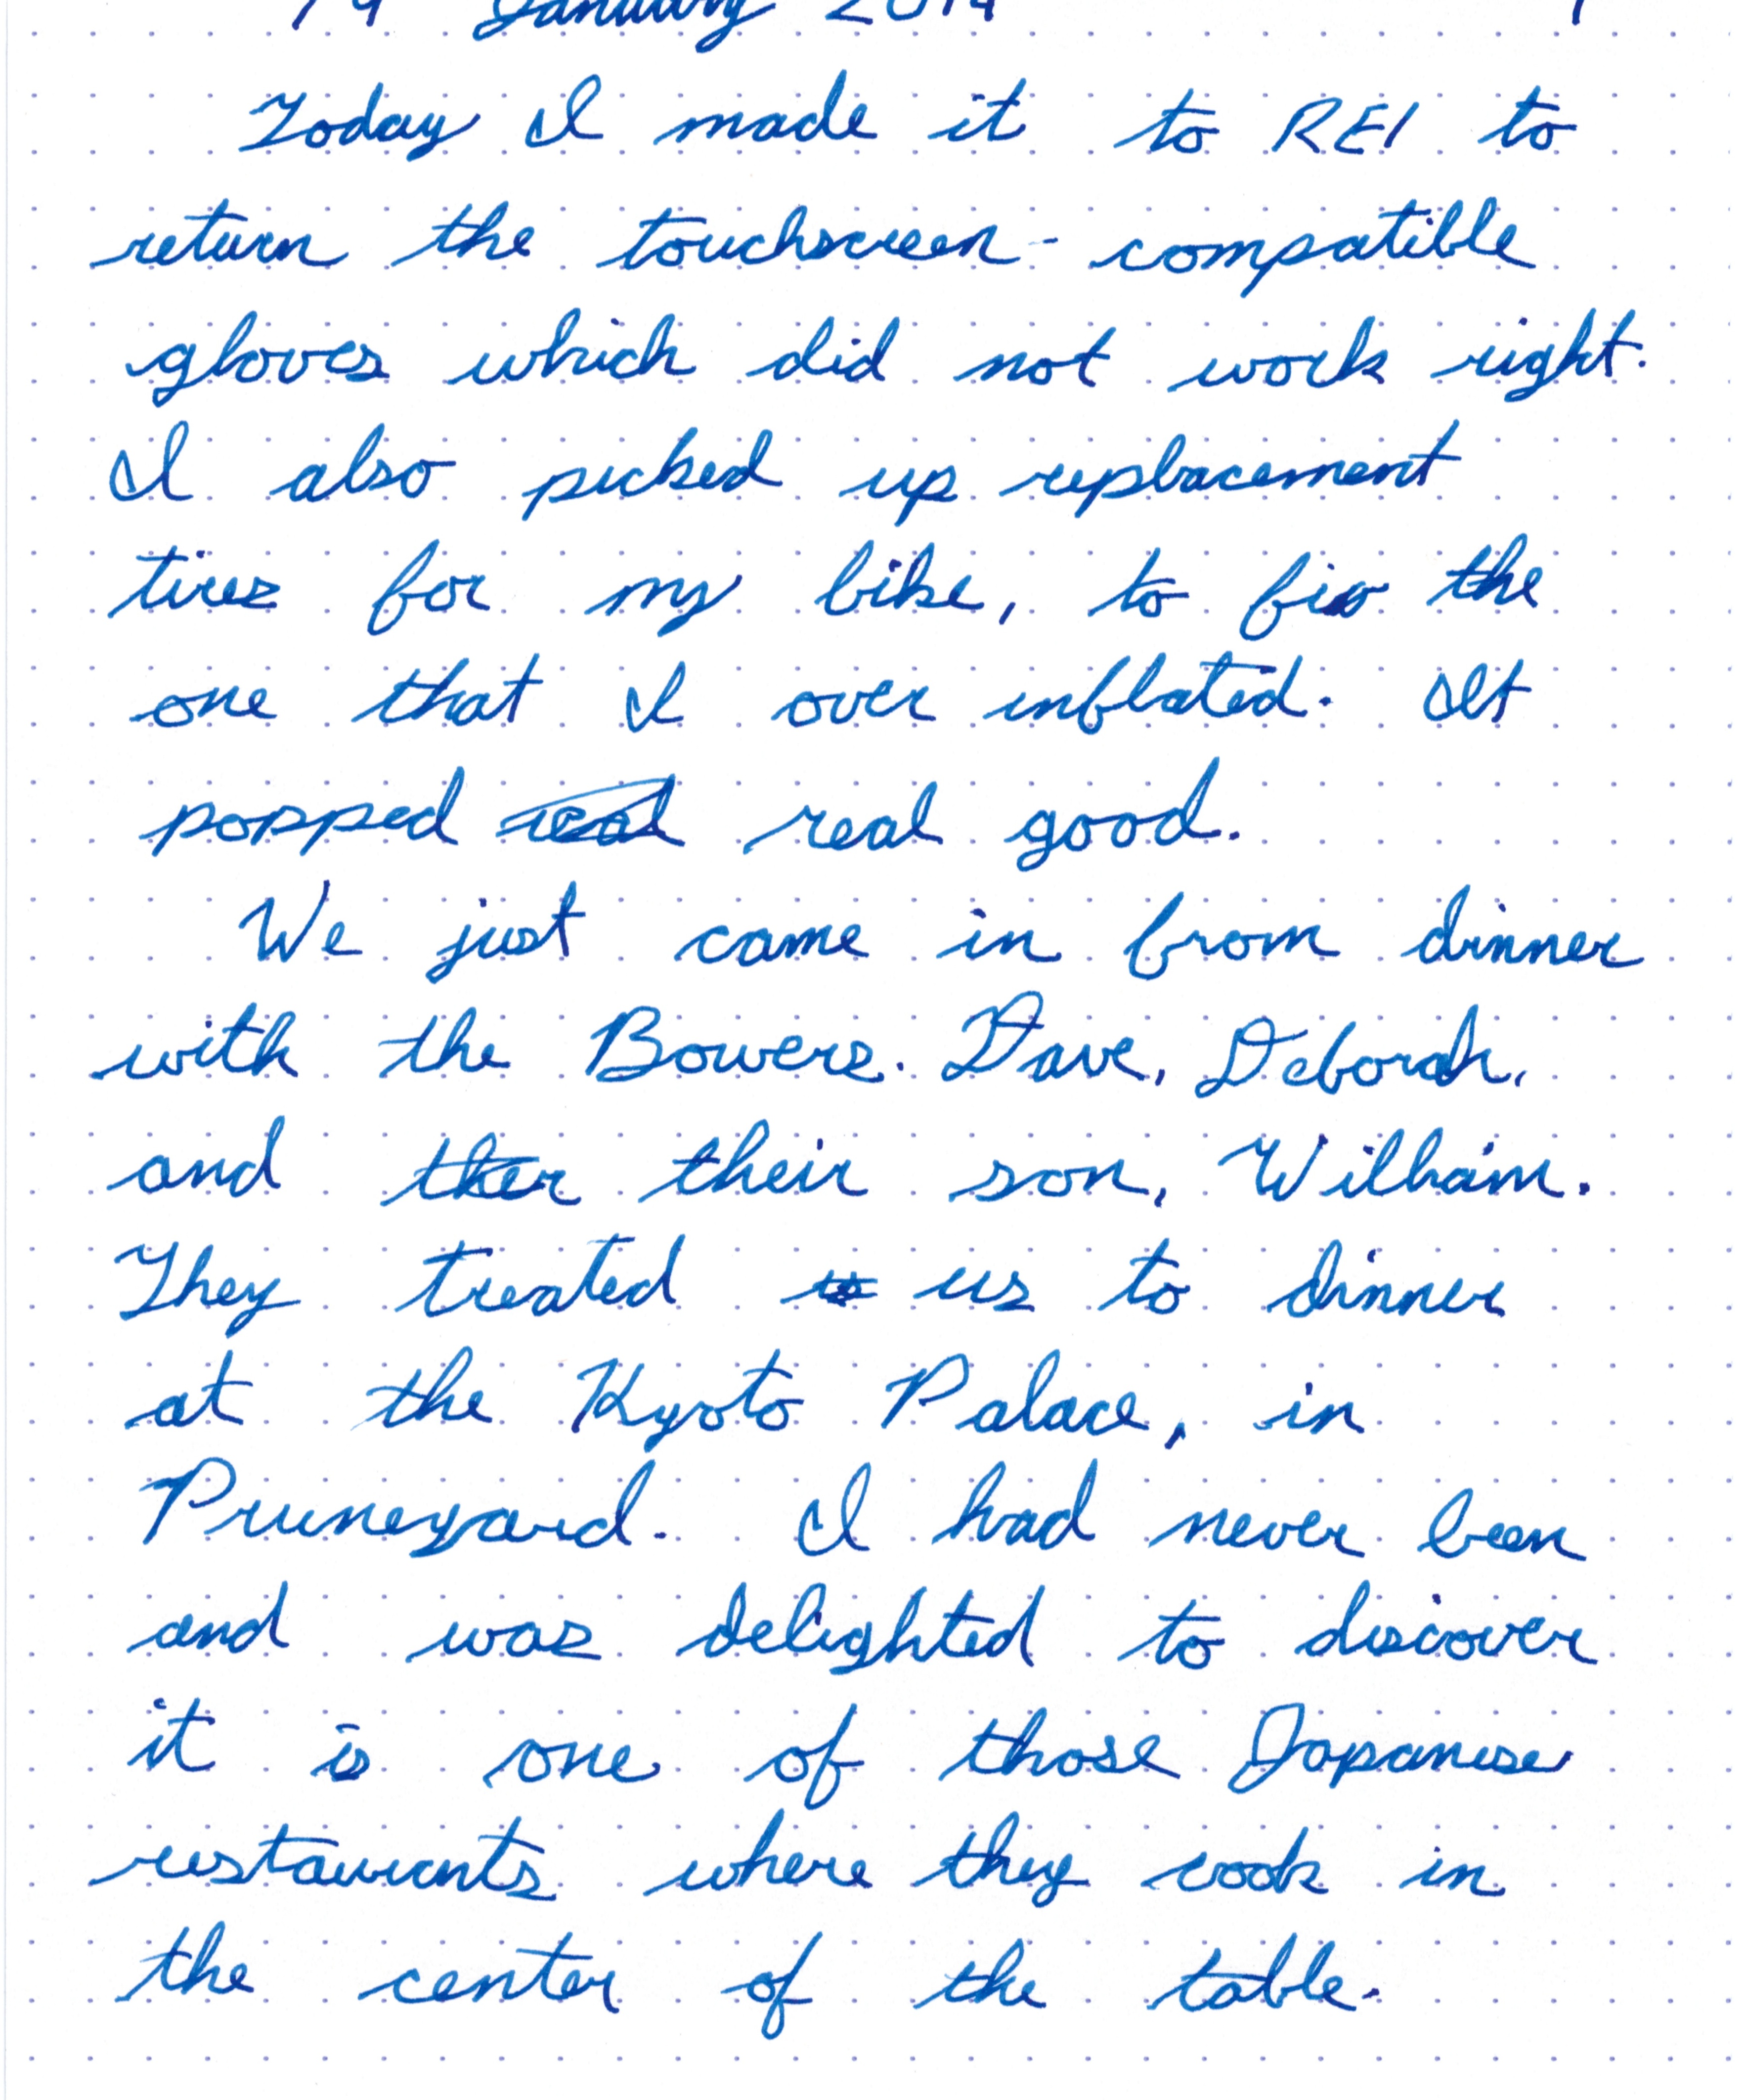 19 January 2014 1
Today I made it to REI to
return the touchscreen-compatible
gloves which did not work right.
I also picked up replacement
tires for my bike, to fix the
one that I over inflated. It
popped real real good.
We just came in from dinner
with the Bowers. Dave, Deborah,
and ther their son, William.
They treated us to dinner
at the Kyoto Palace, in
Pruneyard. I had never been
and was delighted to discover
it is one of those Japanese
restaurants where they cook in
the center of the table.